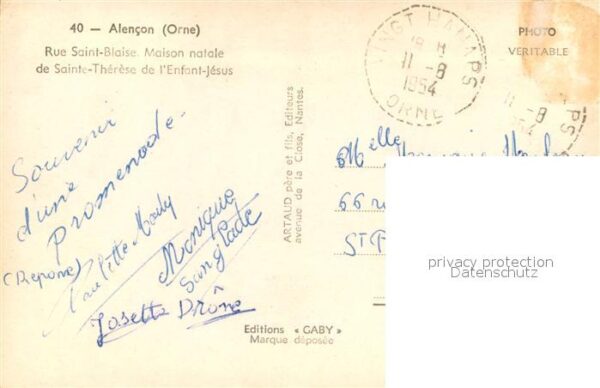 40 — Alençon (Orne)
Rue Saint-Blaise. Maison natale
de Sainte-Thérèse de l'Enfant-Jésus
VINGT HANAPS
18 H
11-8
1954
ORNE
PHOTO
VERITABLE
11-8
1954
APS
Souvenir
d'une
Promenade
(Repone)
Monique
Sanglade
Josette Drône
ARTAUD père et fils, Editeurs
avenue de la Close, Nantes.
Melle
66 r
St P
privacy protection
Datenschutz
Editions « GABY »
Marque déposée